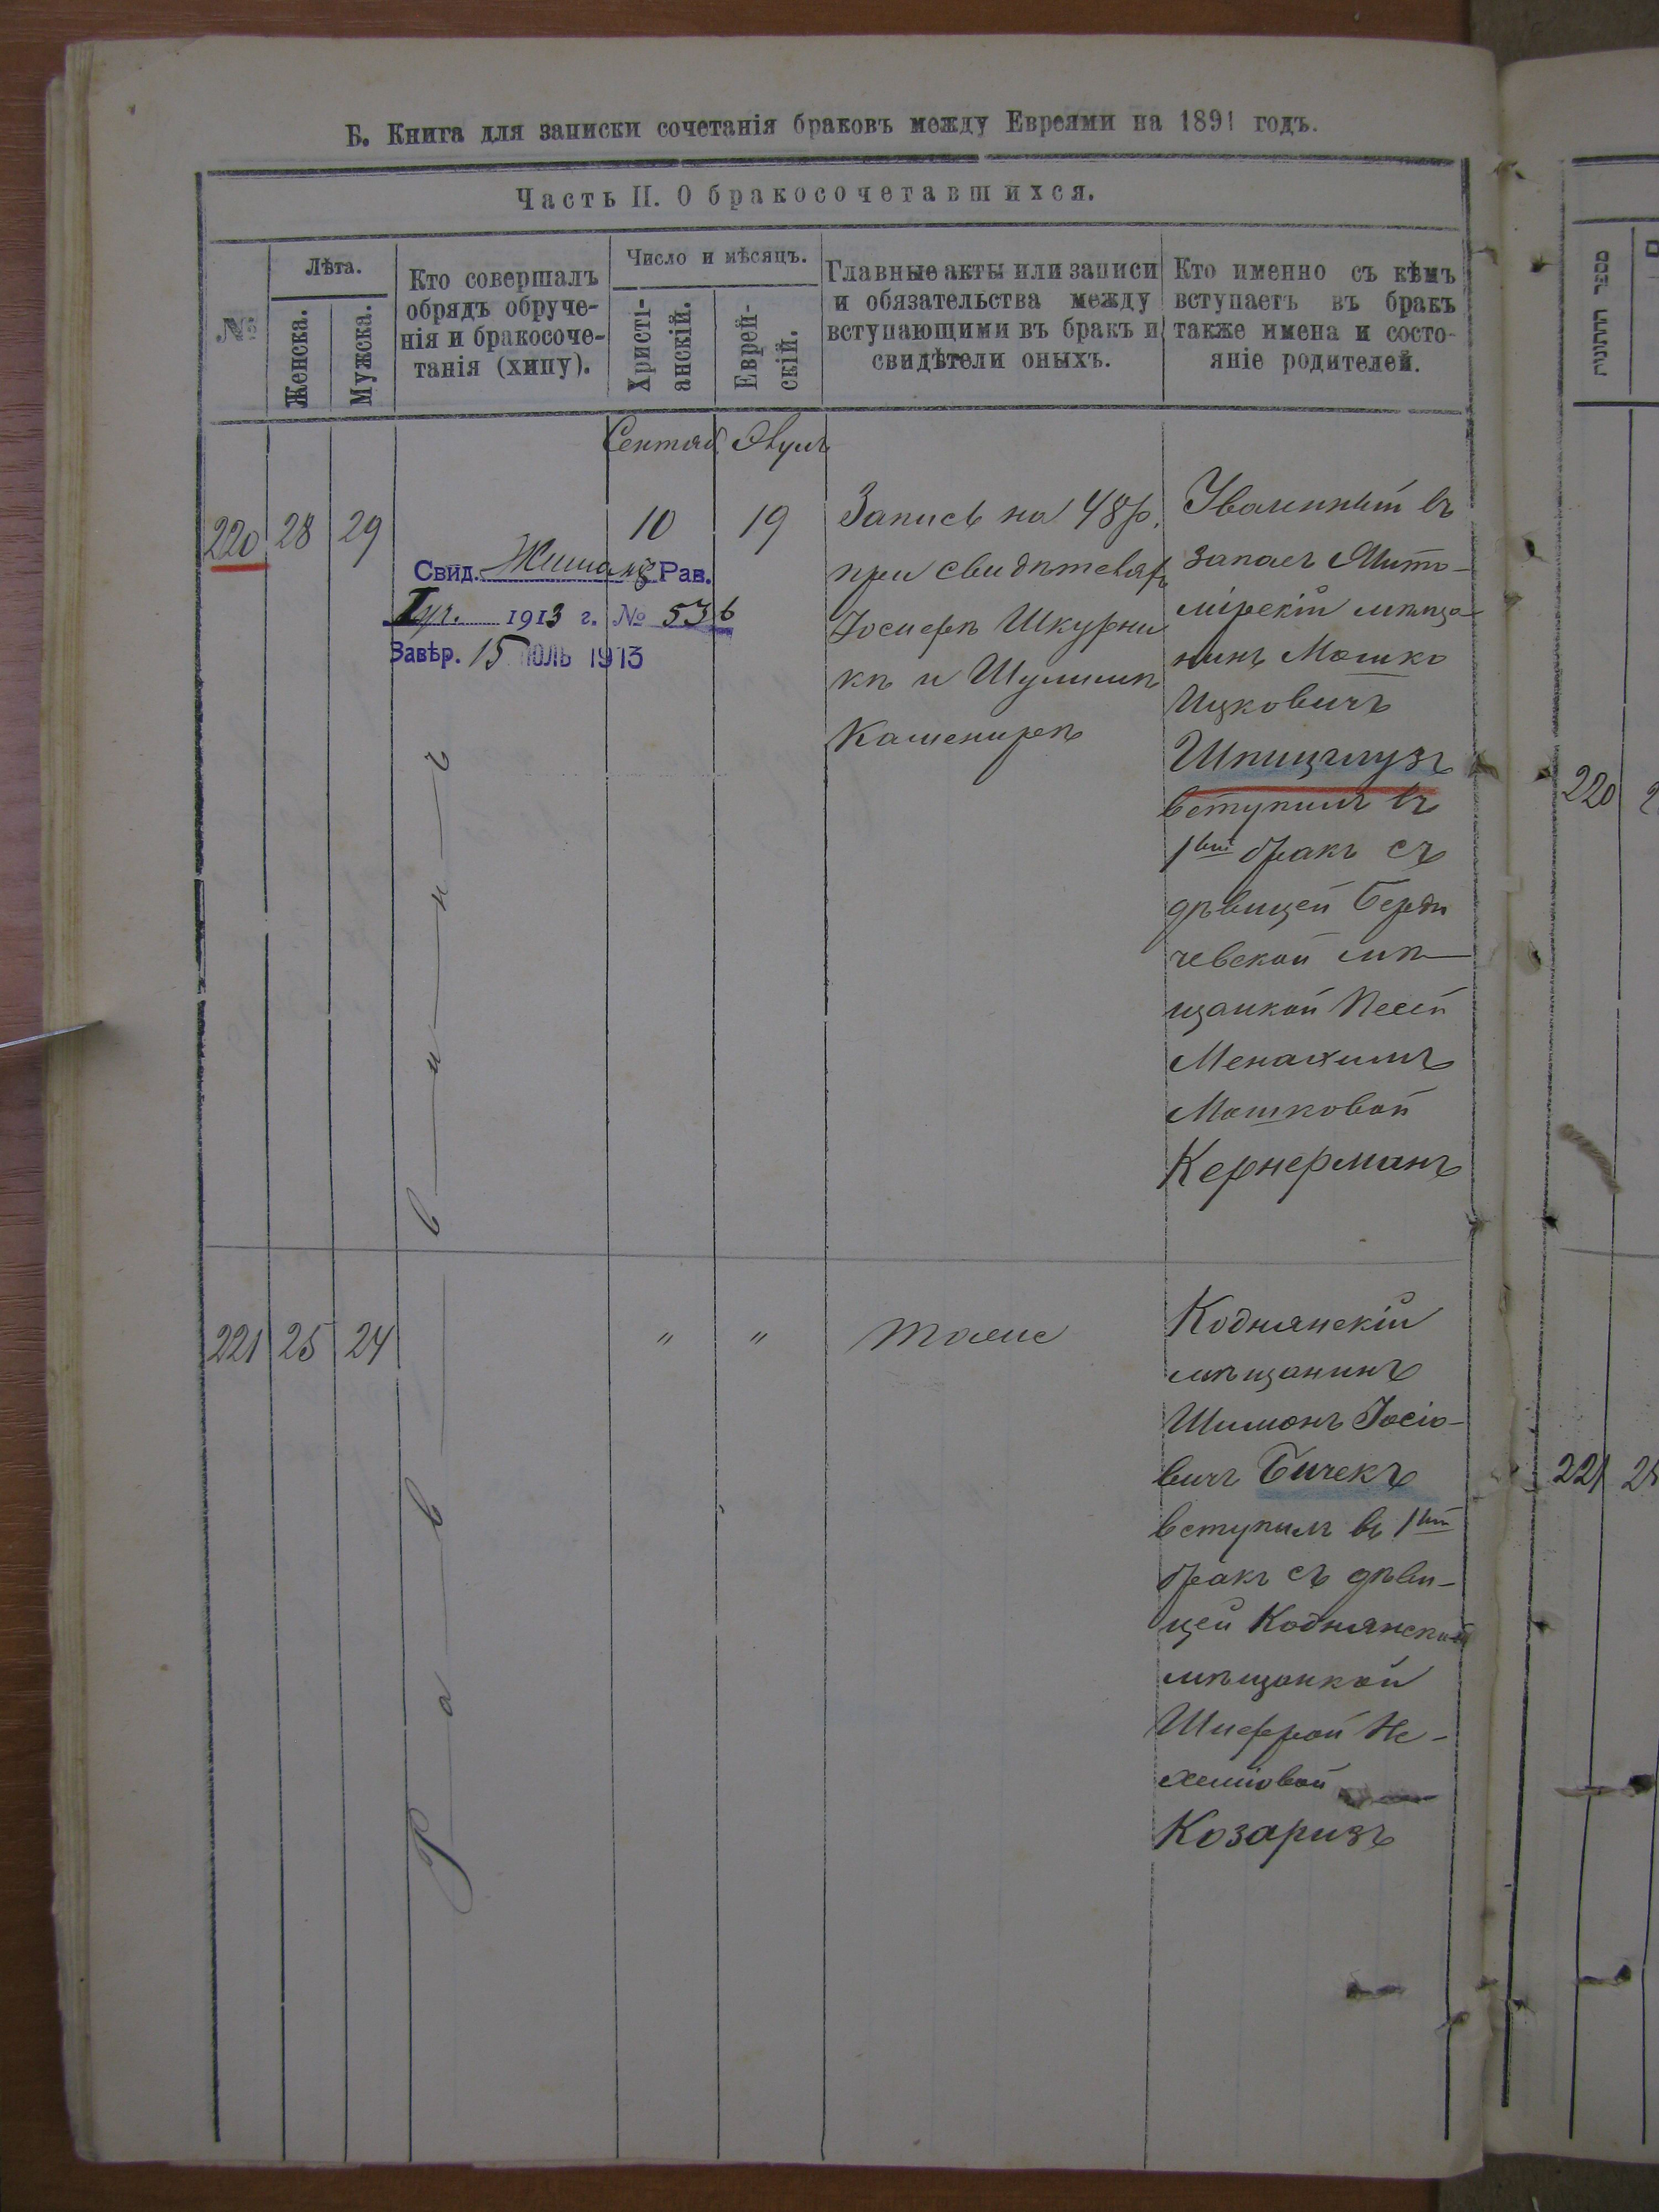 Б. Книга для записки сочетанія браковъ между Евреями на 1891 годъ.
Часть II. О бракосочетавшихся.
№
Лѣта.
Женска.
Мужска.
Кто совершалъ
обрядъ обруче-
нія и бракосоче-
танія (хипу).
Число и мѣсяцъ.
Христі-
анскій.
Еврей-
скій.
Главные акты или записи
и обязательства между
вступающими въ бракъ и
свидѣтели оныхъ.
Кто именно съ кѣмъ
вступаетъ въ бракъ
также имена и состо-
яніе родителей.
מספר החתונות
Сентяб. Элулъ
220 28 29
10 19
Запись на 48 р.
при свидѣтеляхъ
Іосифѣ Шкурни
кѣ и Шулимѣ
Каменирѣ
Уволенный въ
запасъ Жито-
мірскій мѣща-
нинъ Мошко
Ицковичъ
Шпицглузъ
вступилъ въ
1вый бракъ съ
дѣвицей Берди
чевской мѣ-
щанкой Песей
Менахимъ
Мошковой
Кернерманъ
Свид. Рав.
1913 г. № 536
Завѣр. 15 ІЮЛЬ 1913
Раввинъ
221 25 24
" "
тоже
Коднянскій
мѣщанинъ
Шимонъ Іосіо-
вичъ Бичекъ
вступилъ въ 1вый
бракъ съ дѣви-
цей Коднянской
мѣщанкой
Шифрой Не-
хеміовой
Козаризъ
220
221